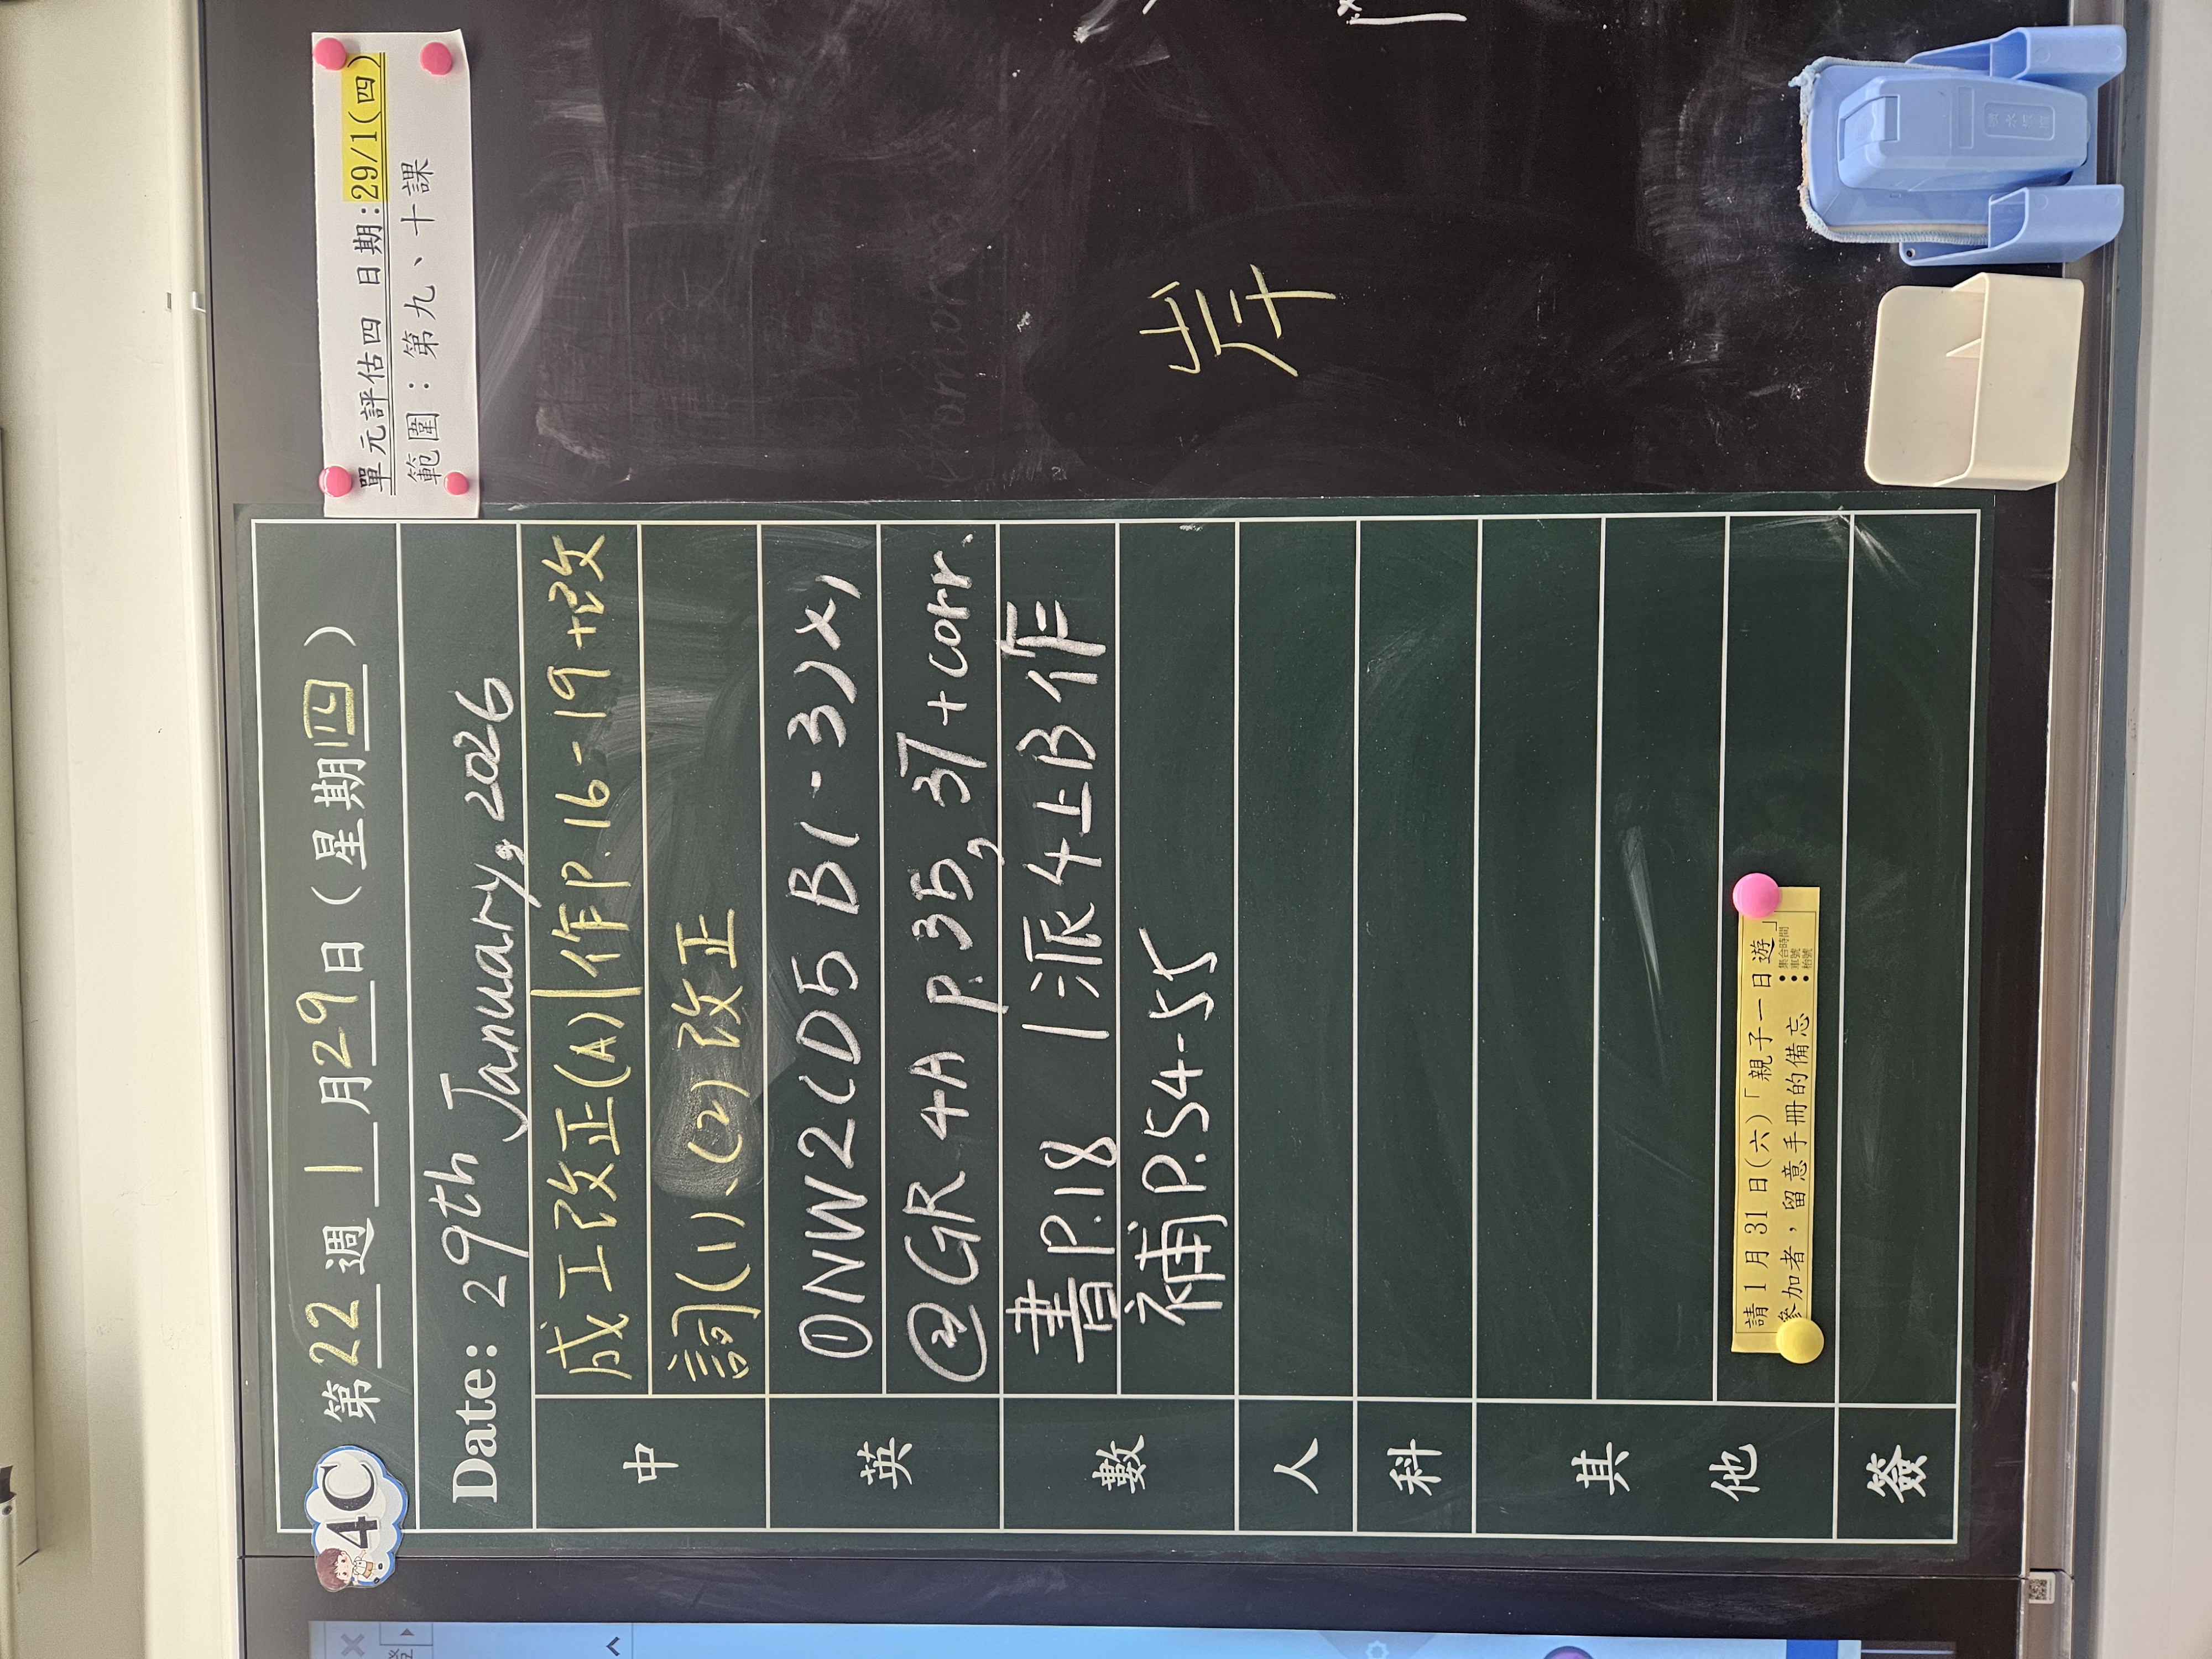 4C 第22週 1月29日(星期四)
Date: 29th January, 2026
中
成工改正(A)|作P.16-19+改
詞(1)、(2)改正
英
①NW2(D5 B1-3)x1
②GR 4A P.35, 37+corr.
數
書P.18 |派4上B作
補P.54-55
人
科
其他
請1月31日(六)「親子一日遊」
參加者,留意手冊的備忘
•集合時間
•車號
•枱號
簽
單元評估四 日期:29/1(四)
範圍:第九、十課
岸